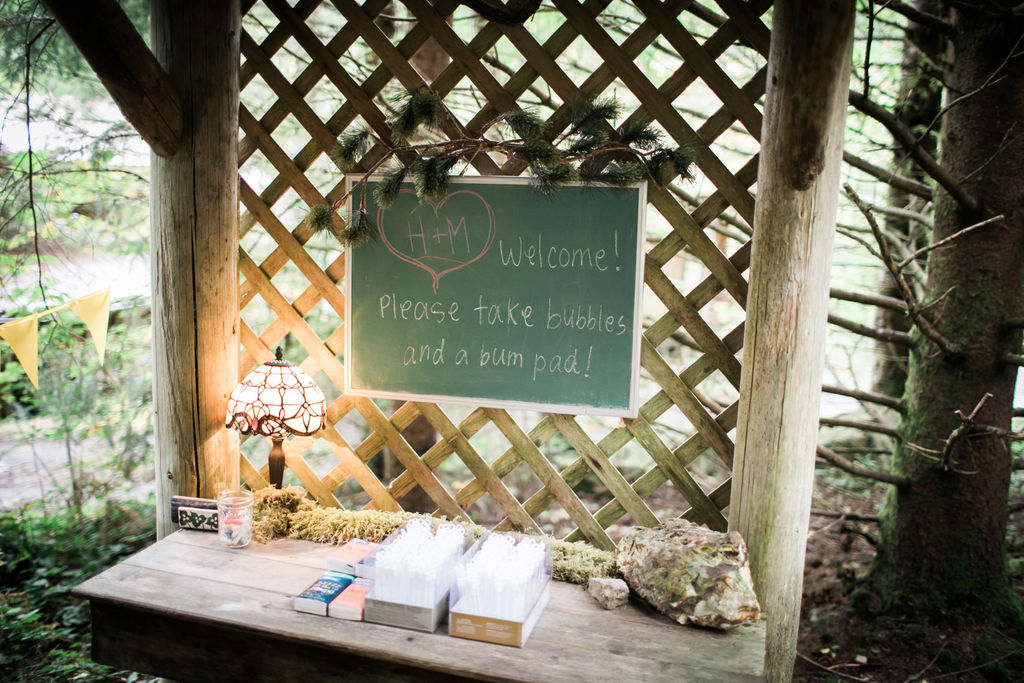 H+M
Welcome!
Please take bubbles
and a bum pad!